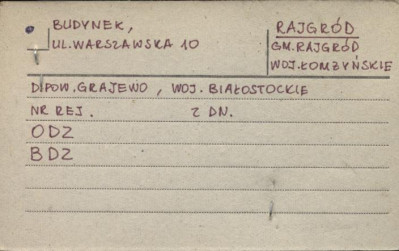 BUDYNEK,
UL. WARSZAWSKA 10
RAJGRÓD
GM. RAJGRÓD
WOJ. ŁOMŻYŃSKIE
D. POW. GRAJEWO, WOJ. BIAŁOSTOCKIE
NR REJ. Z DN.
ODZ
BDZ